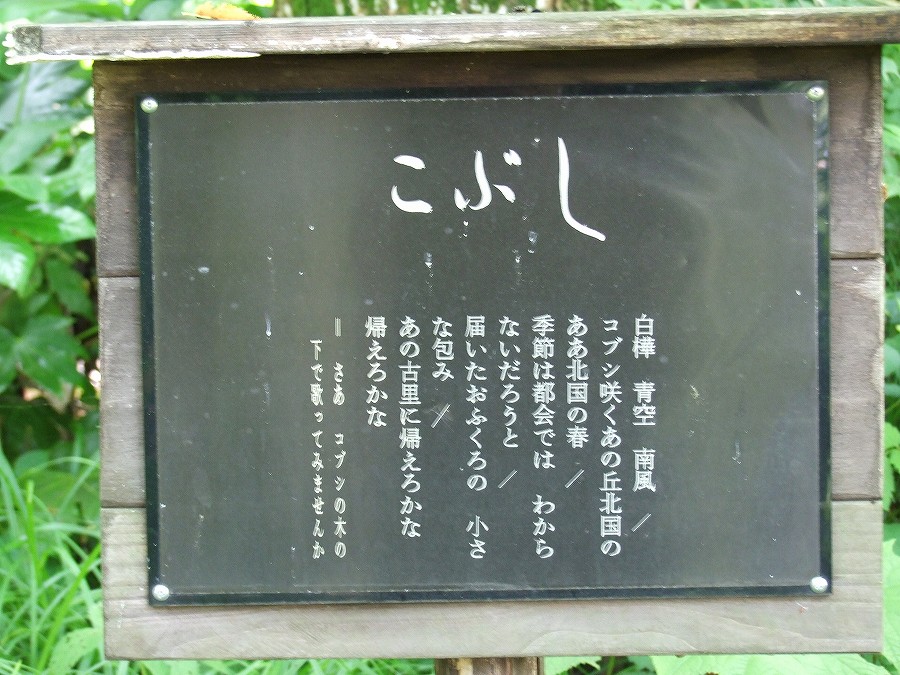 こぶし
白樺　青空　南風　／
コブシ咲くあの丘北国の
ああ北国の春　／
季節は都会では　わから
ないだろうと　／
届いたおふくろの　小さ
な包み　／
あの古里に帰えろかな
帰えろかな
＝　さあ　コブシの木の
下で歌ってみませんか